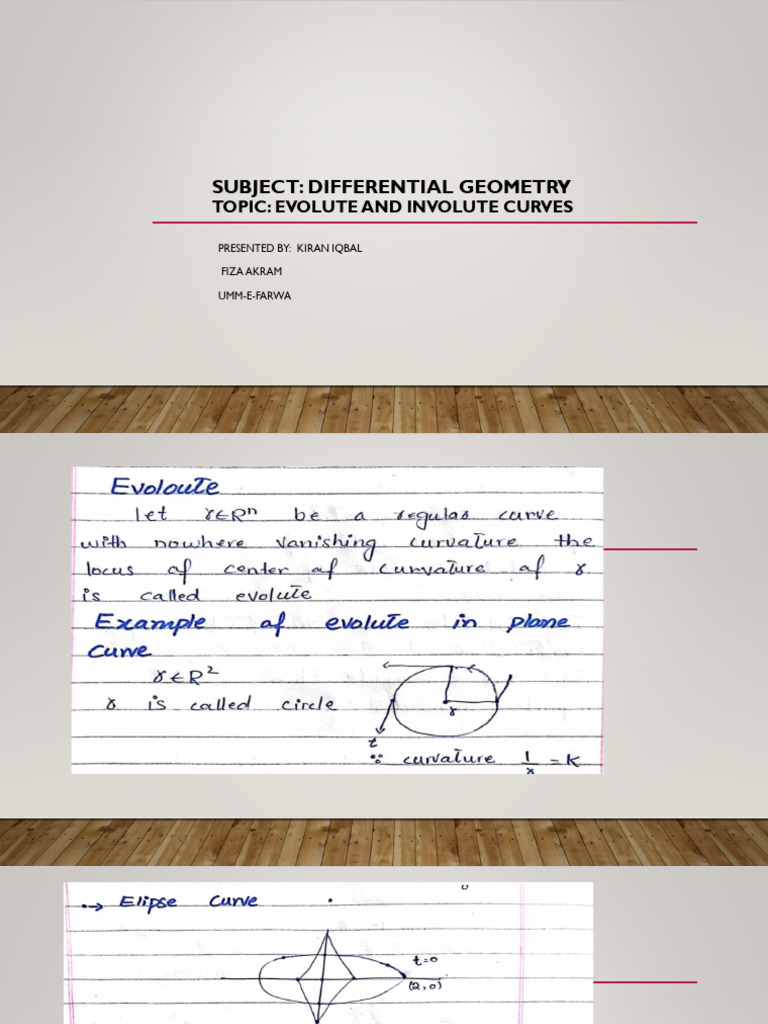 SUBJECT: DIFFERENTIAL GEOMETRY
TOPIC: EVOLUTE AND INVOLUTE CURVES
PRESENTED BY: KIRAN IQBAL
FIZA AKRAM
UMM-E-FARWA
Evoloute
Let γ∈Rⁿ be a regular curve
with nowhere vanishing curvature the
locus of center of curvature of γ
is called evolute
Example of evolute in plane
curve
γ∈R²
γ is called circle
r
t
∵ curvature 1/r = K
•→ Elipse Curve
t=0
(2,0)